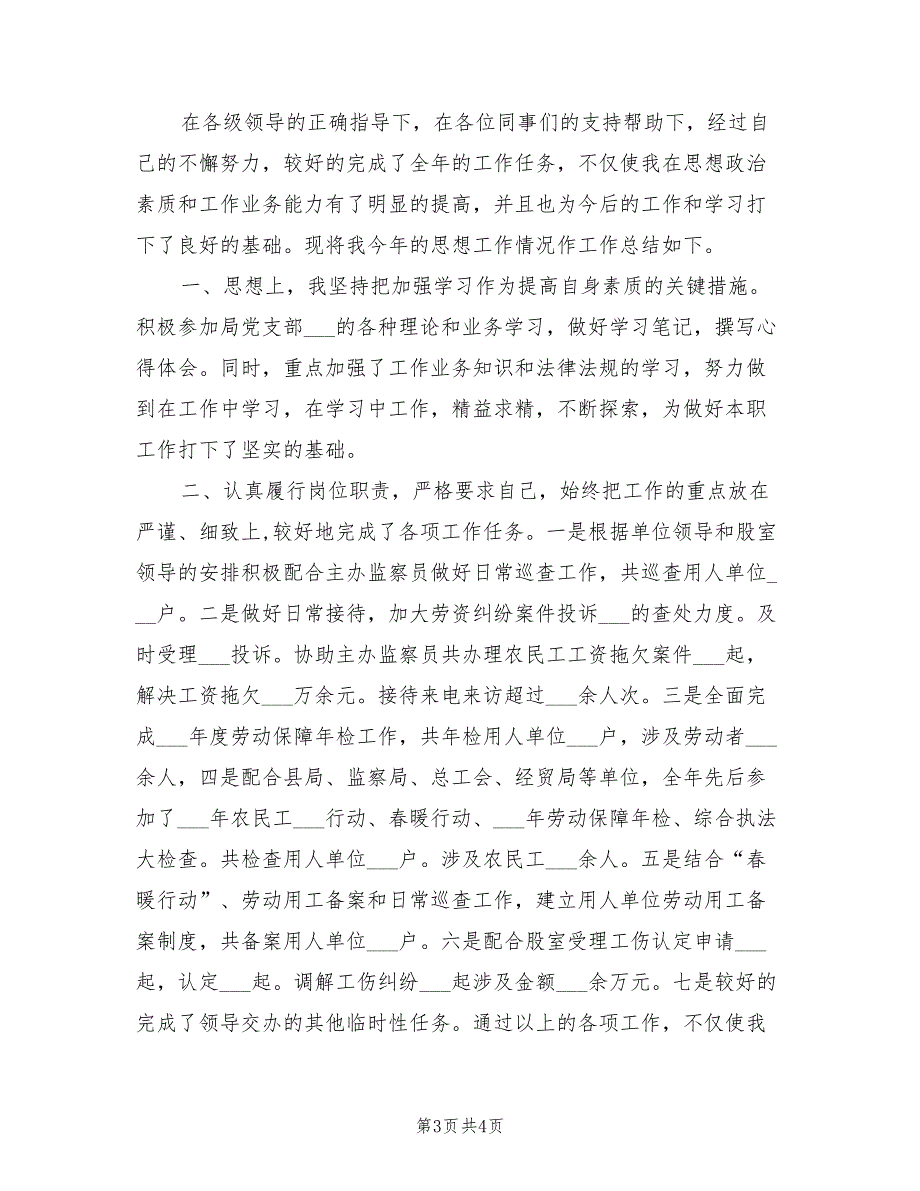 在各级领导的正确指导下，在各位同事们的支持帮助下，经过自
己的不懈努力，较好的完成了全年的工作任务，不仅使我在思想政治
素质和工作业务能力有了明显的提高，并且也为今后的工作和学习打
下了良好的基础。现将我今年的思想工作情况作工作总结如下。
一、思想上，我坚持把加强学习作为提高自身素质的关键措施。
积极参加局党支部___的各种理论和业务学习，做好学习笔记，撰写心
得体会。同时，重点加强了工作业务知识和法律法规的学习，努力做
到在工作中学习，在学习中工作，精益求精，不断探索，为做好本职
工作打下了坚实的基础。
二、认真履行岗位职责，严格要求自己，始终把工作的重点放在
严谨、细致上,较好地完成了各项工作任务。一是根据单位领导和股室
领导的安排积极配合主办监察员做好日常巡查工作，共巡查用人单位_
__户。二是做好日常接待，加大劳资纠纷案件投诉___的查处力度。及
时受理___投诉。协助主办监察员共办理农民工工资拖欠案件___起，
解决工资拖欠___万余元。接待来电来访超过___余人次。三是全面完
成___年度劳动保障年检工作，共年检用人单位___户，涉及劳动者___
余人，四是配合县局、监察局、总工会、经贸局等单位，全年先后参
加了___年农民工___行动、春暖行动、___年劳动保障年检、综合执法
大检查。共检查用人单位___户。涉及农民工___余人。五是结合“春
暖行动”、劳动用工备案和日常巡查工作，建立用人单位劳动用工备
案制度，共备案用人单位___户。六是配合股室受理工伤认定申请___
起，认定___起。调解工伤纠纷___起涉及金额___余万元。七是较好的
完成了领导交办的其他临时性任务。通过以上的各项工作，不仅使我
第3页 共4页